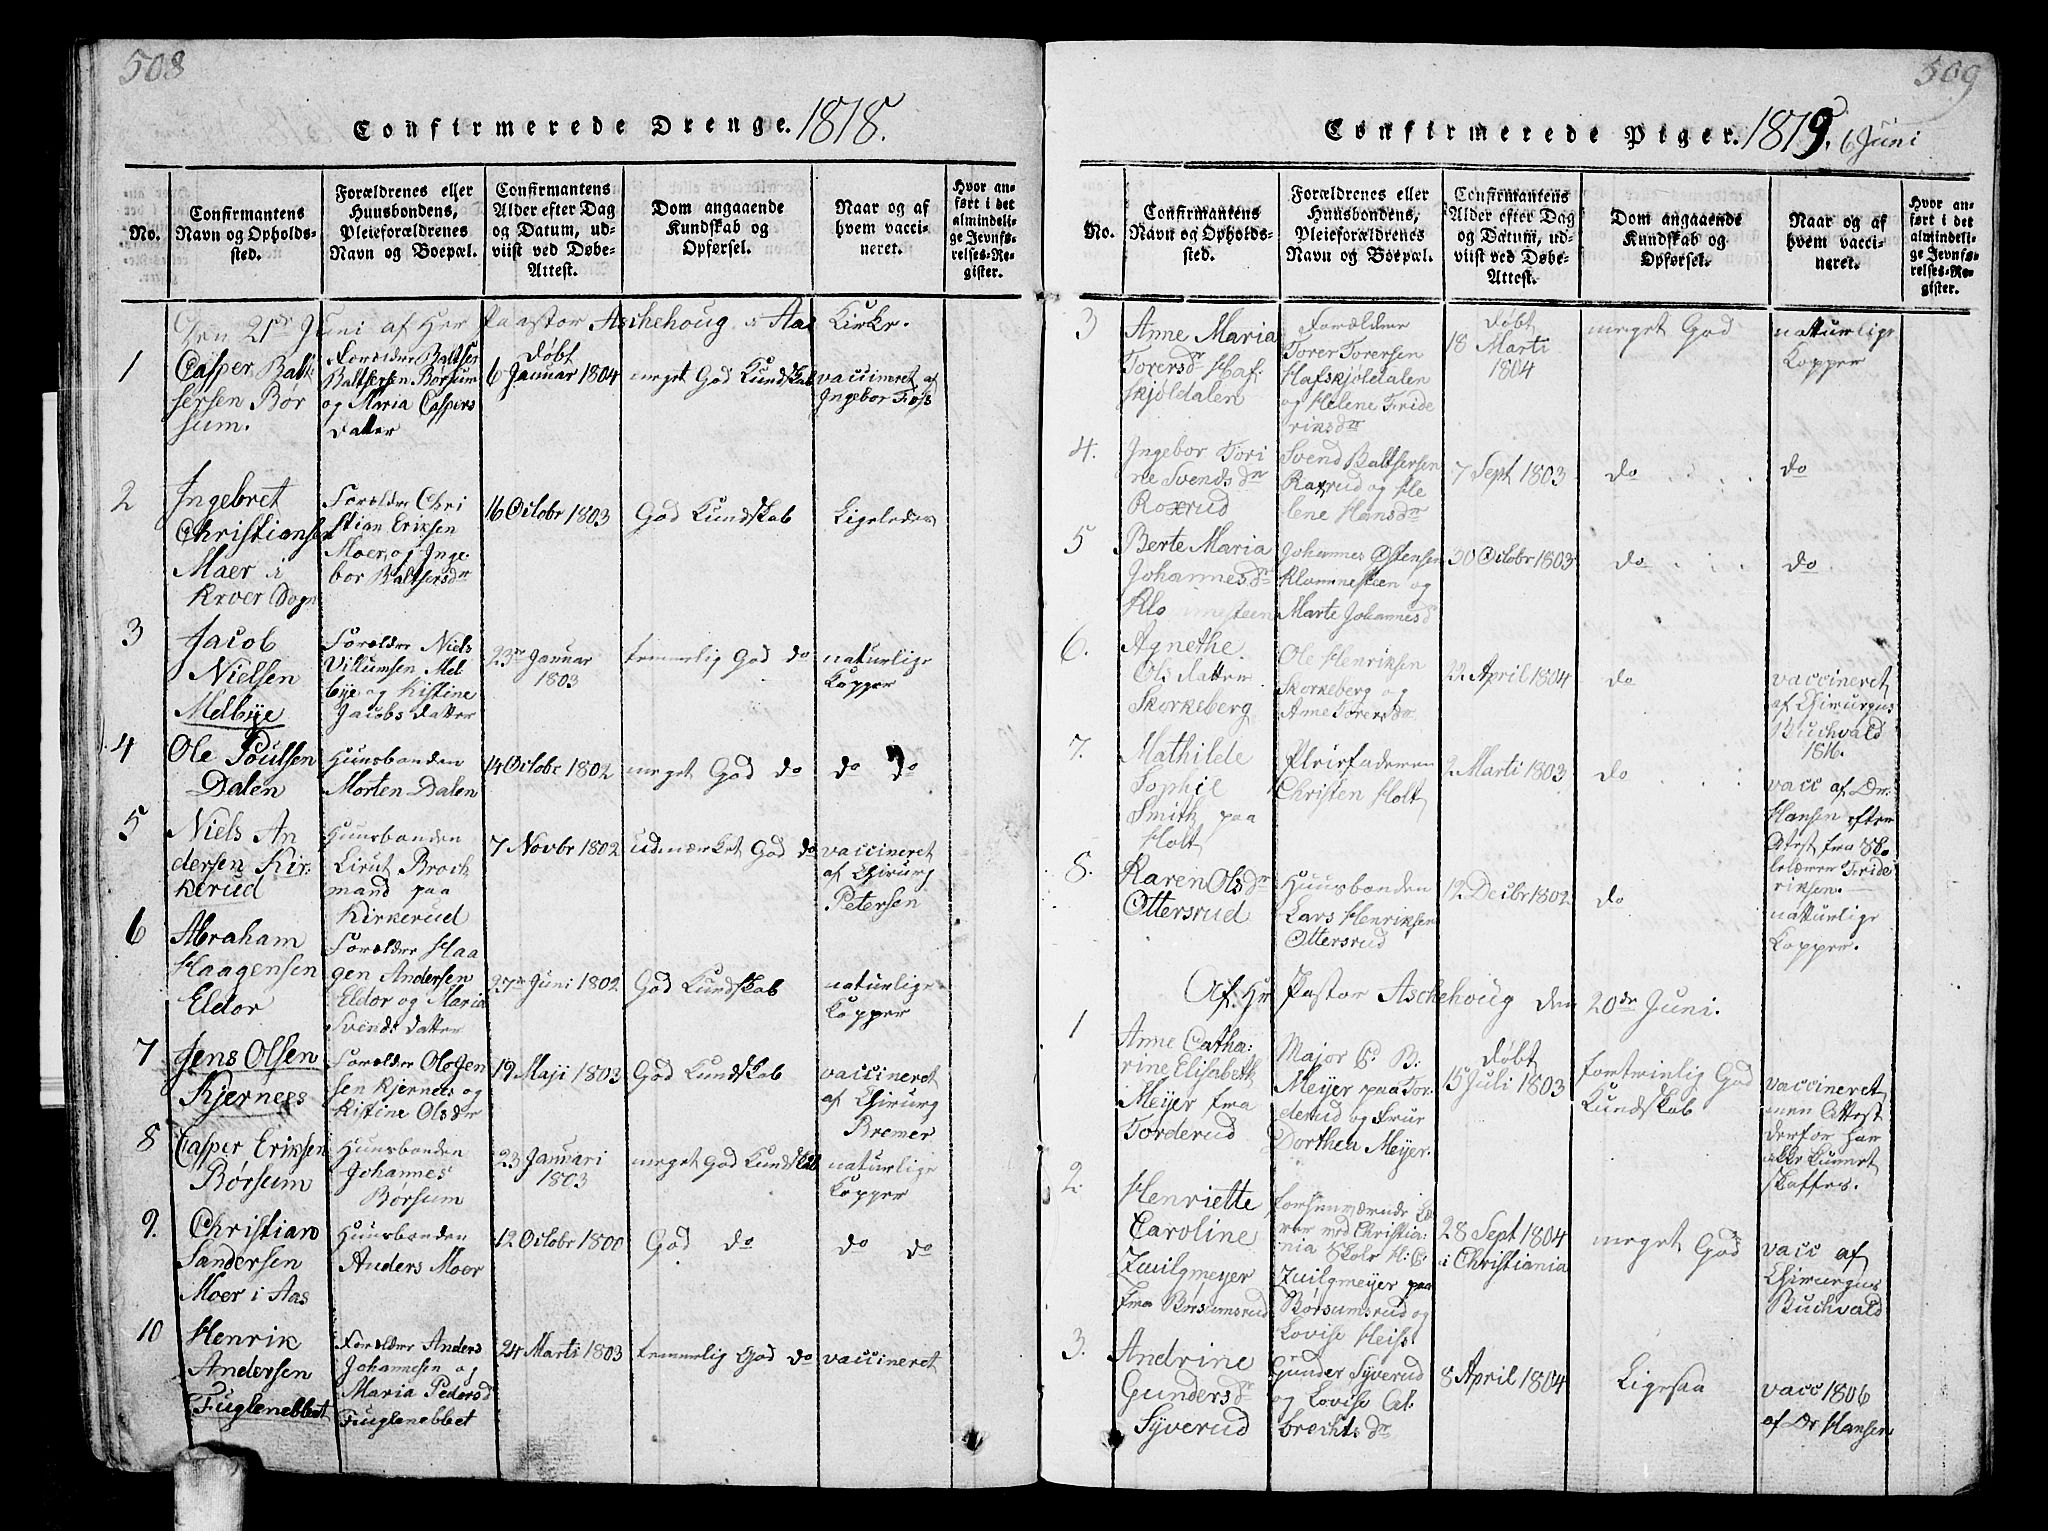 508
Confirmerede Drenge. 1818.
No.
Confirmantens
Navn og Opholds-
sted.
Forældrenes eller
Huusbondens,
Pleieforældrenes
Navn og Boepæl.
Confirmantens
Alder efter Dag
og Datum, ud-
viist ved Døbe-
Attest.
Dom angaaende
Kundskab og
Opførsel.
Naar og af
hvem vacci-
neret.
Hvor an-
ført i det
almindeli-
ge Jevnfø-
relses-Re-
gister.
Den 21de Juni af Her Paastor Aschehoug i Aas Kirke.
1
Casper Balt
sersen Bor
sum.
Forældre Baltser
Baltsersen Børsum
og Maria Caspers
datter
Døbt
6 Januar 1804
meget God Kundskab
vaccineret af
Ingebor Foss
2
Ingebret
Christiansen
Maer i
Kroer Sogn
Forældre Chri
stian Eriksen
Moer og Inge
bor Baltsersdr
16 Octobr 1803
God Kundskab
Ligeledes
3
Jacob
Nielsen
Melbye
Forældre Niels
Villumsen Mel-
bye og Kistine
Jacobs datter
23de Januar
1803
temmelig God do
naturlige
Kopper
4
Ole Poulsen
Dalen
Huusbonden
Morten Dalen
14 Octobr 1802
meget God do
do do
5
Niels An
dersen Kir-
kerud
Huusbonden
Lieut Brock
mand paa
Kirkerud
7 Novbr 1802
udmærket God do
vaccineret
af Chirurg
Petersen
6
Abraham
Haagensen
Eldor
Forældre Haa
gen Andersen
Eldor og Maria
Svends datter
27de Juni 1802
God Kundskab
naturlige
Kopper
7
Jens Olsen
Kjernees
Forældre Ole Jen
sen Kjernees og
Kistine Olsdr
19 Maji 1803
God Kundskab
vaccineret
af Chirurg
Bremer
8
Casper Eriksen
Børsum
Huusbonden
Johannes
Børsum
23 Januari
1803
meget God Kundskab
naturlige
Kopper
9.
Christian
Sandersen
Moer i Aas
Huusbonden
Anders Moer
12 Octobr 1800
God do
do do
10
Henrik
Andersen
Fuglenebbet
Forældre Anders
Johannesen og
Maria Pedersd
Fuglenebbet
24 Marti 1803
temmelig God do
vaccineret
509
Confirmerede Piger. 1819. 6 Juni
No.
Confirmantens
Navn og Opholds-
sted.
Forældrenes eller
Huusbondens,
Pleieforældrenes
Navn og Boepæl.
Confirmantens
Alder efter Dag
og Datum, ud-
viist ved Døbe-
Attest.
Dom angaaende
Kundskab og
Opførsel.
Naar og af
hvem vacci-
neret.
Hvor an-
ført i det
almindeli-
ge Jevnfø-
relses-Re-
gister.
3
Anne Maria
Torersdr Haf-
skjoldalen
Forældre
Torer Torersen
Hafskjoldalen
og Helene Fride
riksdr
Døbt
18 Marti
1804
meget God
naturlige
Kopper
4.
Ingebor Tori
ne Svendsdr
Roxrud
Svend Baltsersen
Roxrud og He
lene Hansdr
7 Sept 1803
do
do
5
Berte Maria
Johannesdr
Klommesteen
Johannes Ostensen
Klommesteen og
Marte Johannesd
30 Octobr 1803
do
do
6.
Agnethe
Ols datter
Skorkeberg
Ole Henriksen
Skorkeberg og
Anne Torersdr
22 April 1804
do
vaccineret
af Chirurgus
Buchvald
1816.
7.
Mathilde
Sophie
Smith paa
Holt
Pleiefaderen
Christen Holt
2 Marti 1803
do
vacc af Dr:
Hansen efter
Atest fra Sko
lelærer Fride
riksen.
8.
Karen Olsdr
Ottersrud
Huusbonden
Lars Henriksen
Ottersrud
12 Decbr 1802
do
naturlige
Kopper.
Af Hr Pastor Aschehoug den 20de Juni.
1
Anne Catha:
rine Elisabeth
Meyer fra
Torderud
Major C: B:
Meyer paa Tor-
derud og Frue
Dorthea Meyer.
Døbt
15 Juli 1803
fortrinlig God
Kundskab
vaccineret
men Attest
derfor har
ikke kunnet
skaffes.
2.
Henriette
Caroline
Zwilgmeyer
fra Børsumsrud
forhenværende Læ
rer ved Christia-
nia Skole H: C:
Zwilgmeyer paa
Børsumsrud og
Lovise Heist
28 Sept 1804
i Christiania
meget God
vacc af
Chirurgus
Buchvald
3.
Andrine
Gundersdr
Syverud
Gunder Syverud
og Lovise Al-
brechtsdr
8 April 1804
Ligesaa
vacc 1806
af Dr Hansen